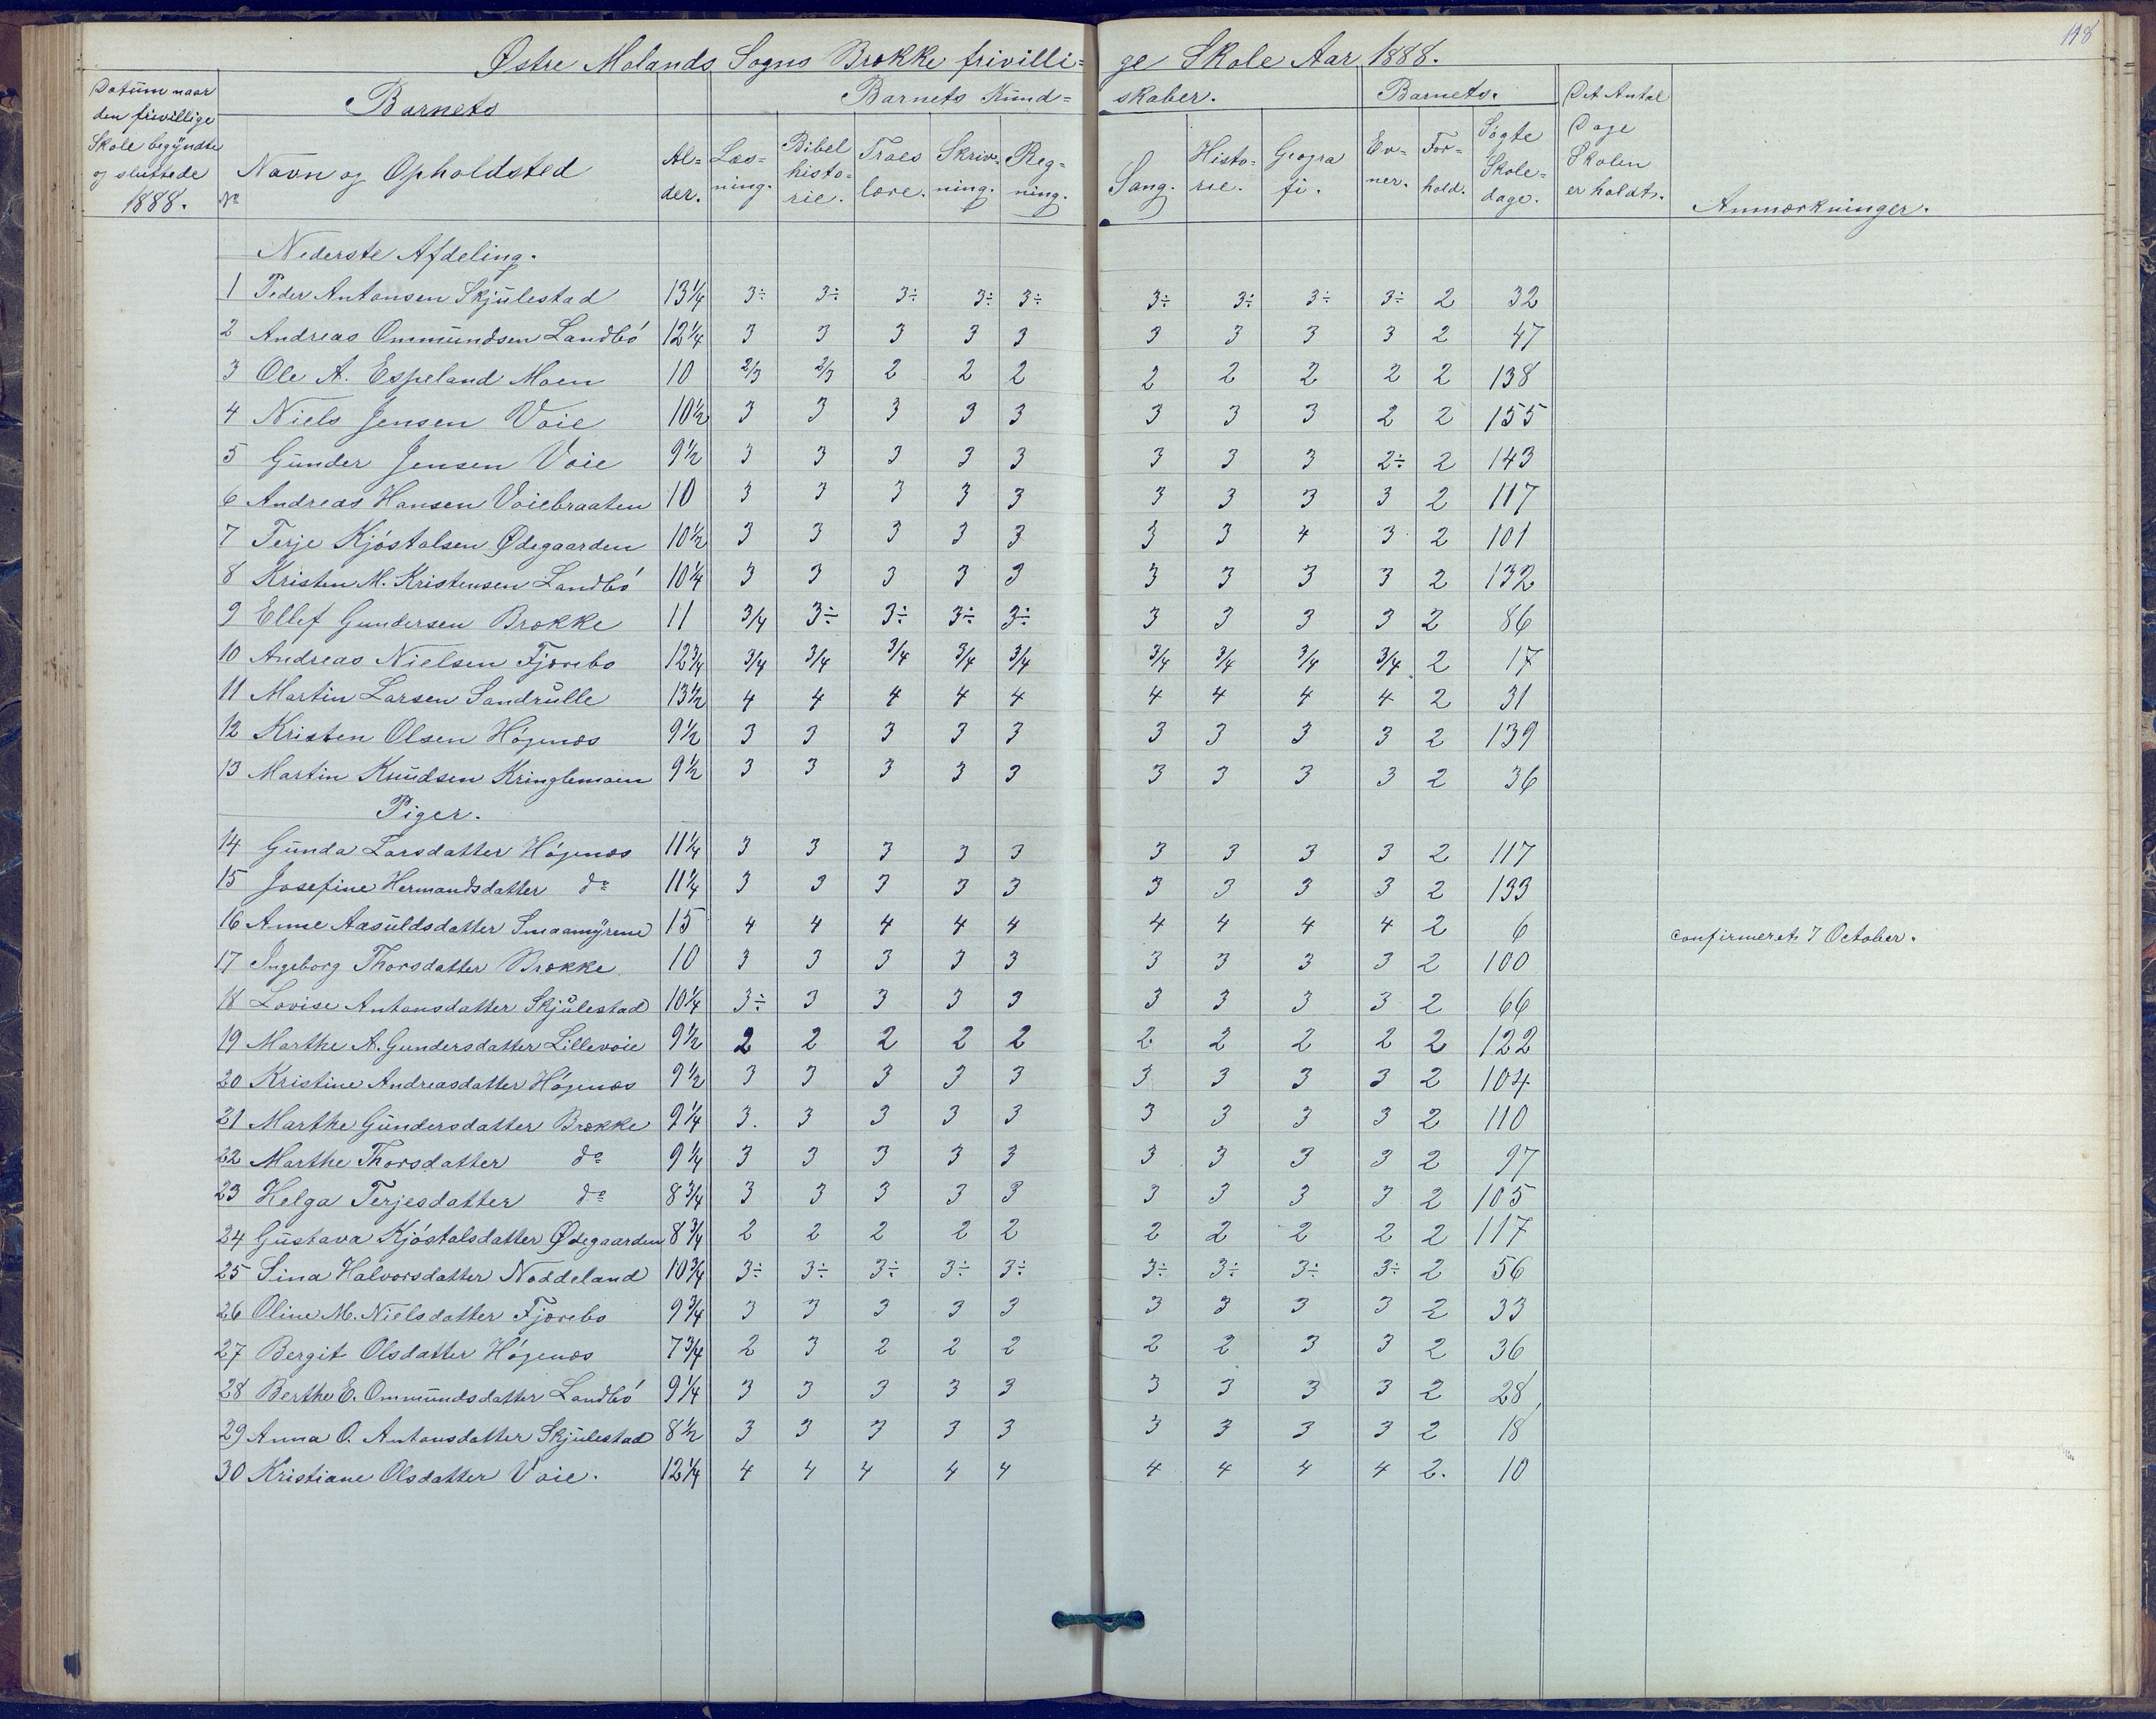 118
Østre Molands Sogns Brække frivillige Skole Aar 1888.
Datum naar den frivillige Skole begyndte og sluttede 1888. Barnets Barnets Kundskaber. Barnets. Det Antal Dage Skolen er holdt. Anmærkninger.
No Navn og Opholdsted Alder. Læsning. Bibelhistorie. Troeslære. Skrivning. Regning. Sang. Historie. Geografi. Evner. Forhold. Søgte Skoledage.
Nederste Afdeling.
1 Peder Antonsen Skjulestad 13¼ 3÷ 3÷ 3÷ 3÷ 3÷ 3÷ 3÷ 3÷ 3÷ 2 32
2 Andreas Ommundsen Landbö 12¼ 3 3 3 3 3 3 3 3 3 2 47
3 Ole A. Espeland Moen 10 2/3 2/3 2 2 2 2 2 2 2 2 138
4 Niels Jensen Vaie 10½ 3 3 3 3 3 3 3 3 2 2 155
5 Gunder Jensen Vaie 9½ 3 3 3 3 3 3 3 3 2÷ 2 143
6 Andreas Hansen Vaiebraaten 10 3 3 3 3 3 3 3 3 3 2 117
7 Terje Kjöstolsen Ødegaarden 10½ 3 3 3 3 3 3 3 4 3 2 101
8 Kristen M. Kristensen Landbö 10¼ 3 3 3 3 3 3 3 3 3 2 132
9 Ellef Gundersen Brække 11 3/4 3÷ 3÷ 3÷ 3÷ 3 3 3 3 2 86
10 Andreas Nielsen Fjærebo 12¾ 3/4 3/4 3/4 3/4 3/4 3/4 3/4 3/4 3/4 2 17
11 Martin Larsen Sandrulle 13½ 4 4 4 4 4 4 4 4 4 2 31
12 Kristen Olsen Högenæs 9½ 3 3 3 3 3 3 3 3 3 2 139
13 Martin Knudsen Kringlemoen 9½ 3 3 3 3 3 3 3 3 3 2 36
Piger.
14 Gunda Larsdatter Högenæs 11¼ 3 3 3 3 3 3 3 3 3 2 117
15 Josefine Hermandsdatter do 11¼ 3 3 3 3 3 3 3 3 3 2 133
16 Anne Aasuldsdatter Smaamyrene 15 4 4 4 4 4 4 4 4 4 2 6 confirmeret 7 October.
17 Ingeborg Thorsdatter Brække 10 3 3 3 3 3 3 3 3 3 2 100
18 Lovise Antonsdatter Skjulestad 10¼ 3÷ 3 3 3 3 3 3 3 3 2 66
19 Marthe A. Gundersdatter Lillevaie 9½ 2 2 2 2 2 2 2 2 2 2 122
20 Kristine Andreasdatter Högenæs 9½ 3 3 3 3 3 3 3 3 3 2 104
21 Marthe Gundersdatter Brække 9¼ 3. 3 3 3 3 3 3 3 3 2 110
22 Marthe Thorsdatter do 9¼ 3 3 3 3 3 3 3 3 3 2 97
23 Helga Terjesdatter do 8¾ 3 3 3 3 3 3 3 3 3 2 105
24 Gustava Kjöstolsdatter Ødegaarden 8¾ 2 2 2 2 2 2 2 2 2 2 117
25 Sina Halvorsdatter Noddeland 10¾ 3÷ 3÷ 3÷ 3÷ 3÷ 3÷ 3÷ 3÷ 3÷ 2 56
26 Oline M. Nielsdatter Fjærebo 9¾ 3 3 3 3 3 3 3 3 3 2 33
27 Bergit Olsdatter Högenæs 7¾ 2 3 2 2 2 2 2 3 3 2 36
28 Berthe E. Ommundsdatter Landbö 9¼ 3 3 3 3 3 3 3 3 3 2 28
29 Anna O. Antonsdatter Skjulestad 8½ 3 3 3 3 3 3 3 3 3 2 18
30 Kristiane Olsdatter Vaie. 12¼ 4 4 4 4 4 4 4 4 4 2. 10